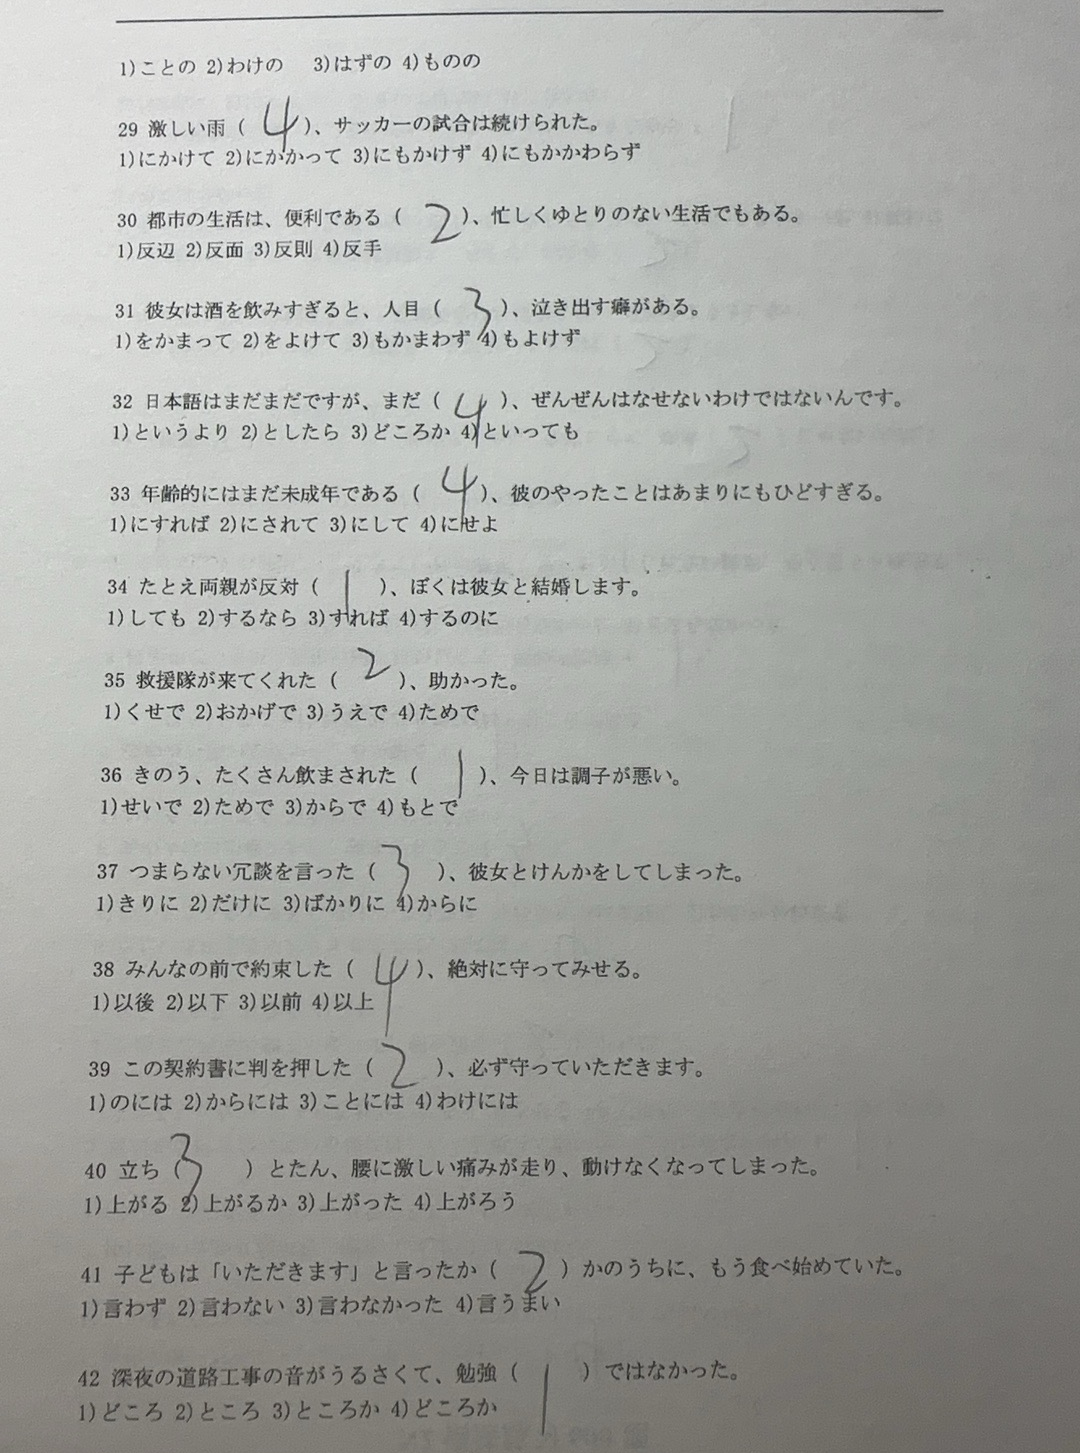 1)ことの 2)わけの 3)はずの 4)ものの
29 激しい雨（ 4 ）、サッカーの試合は続けられた。
1)にかけて 2)にかかって 3)にもかけず 4)にもかかわらず
30 都市の生活は、便利である（ 2 ）、忙しくゆとりのない生活でもある。
1)反辺 2)反面 3)反則 4)反手
31 彼女は酒を飲みすぎると、人目（ 3 ）、泣き出す癖がある。
1)をかまって 2)をよけて 3)もかまわず 4)もよけず
32 日本語はまだまだですが、まだ（ 4 ）、ぜんぜんはなせないわけではないんです。
1)というより 2)としたら 3)どころか 4)といっても
33 年齢的にはまだ未成年である（ 4 ）、彼のやったことはあまりにもひどすぎる。
1)にすれば 2)にされて 3)にして 4)にせよ
34 たとえ両親が反対（ 1 ）、ぼくは彼女と結婚します。
1)しても 2)するなら 3)すれば 4)するのに
35 救援隊が来てくれた（ 2 ）、助かった。
1)くせで 2)おかげで 3)うえで 4)ためで
36 きのう、たくさん飲まされた（ 1 ）、今日は調子が悪い。
1)せいで 2)ためで 3)からで 4)もとで
37 つまらない冗談を言った（ 3 ）、彼女とけんかをしてしまった。
1)きりに 2)だけに 3)ばかりに 4)からに
38 みんなの前で約束した（ 4 ）、絶対に守ってみせる。
1)以後 2)以下 3)以前 4)以上
39 この契約書に判を押した（ 2 ）、必ず守っていただきます。
1)のには 2)からには 3)ことには 4)わけには
40 立ち（ 3 ）とたん、腰に激しい痛みが走り、動けなくなってしまった。
1)上がる 2)上がるか 3)上がった 4)上がろう
41 子どもは「いただきます」と言ったか（ 2 ）かのうちに、もう食べ始めていた。
1)言わず 2)言わない 3)言わなかった 4)言うまい
42 深夜の道路工事の音がうるさくて、勉強（ 1 ）ではなかった。
1)どころ 2)ところ 3)ところか 4)どころか